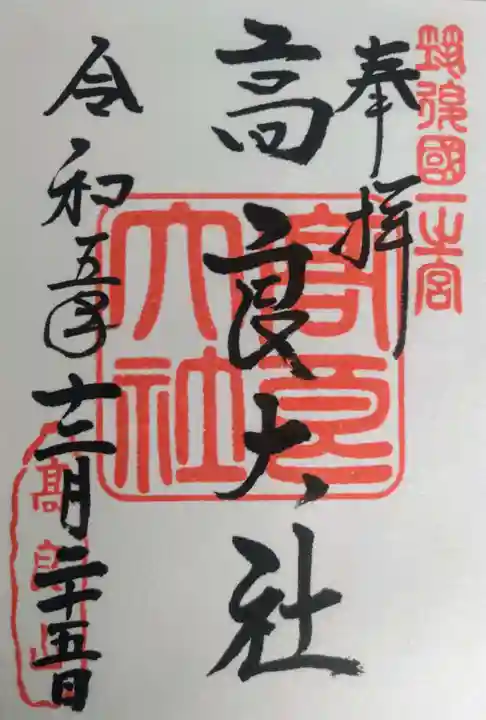 筑後國一之宮
奉拝
高良大社
高良大社
令和五年十二月二十五日
高良山